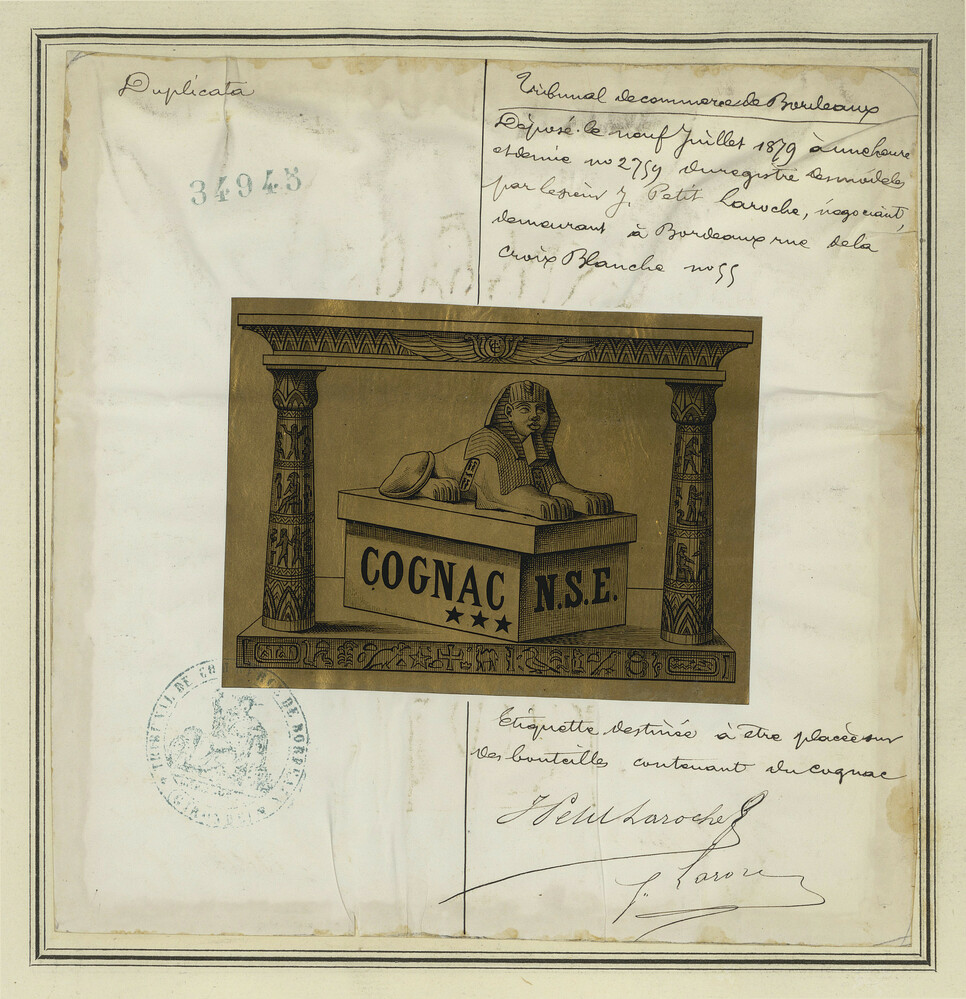 Duplicata
34945
Tribunal de commerce de Bordeaux
Déposé le neuf Juillet 1879 à une heure
et demie no 2759 du registre des modèles
par le sieur J. Petit Laroche, négociant,
demeurant à Bordeaux rue de la
croix Blanche no 55
COGNAC N.S.E.
TRIBUNAL DE COMMERCE DE BORDEAUX
(GIRONDE)
Etiquette destinée à être placée sur
des bouteilles contenant du cognac
J Petit Laroche